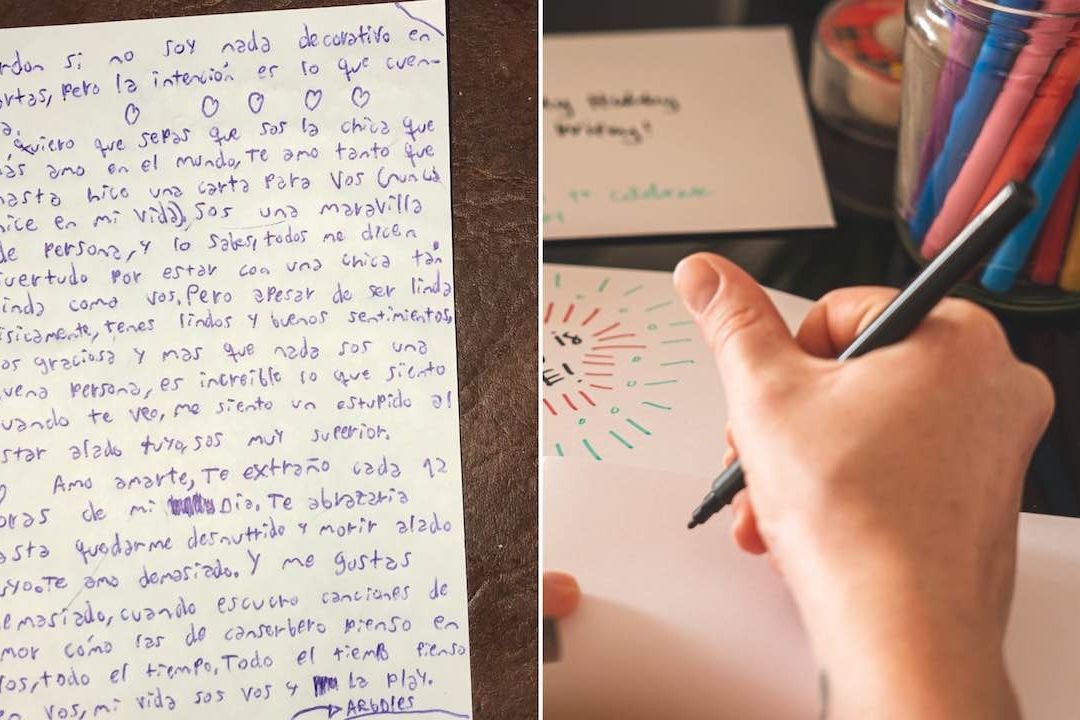 rdon si no soy nada decorativo en
artas, pero la intención es lo que cuen-
a.
quiero que sepas que sos la chica que
ás amo en el mundo, Te amo tanto que
hasta hice una carta para vos (nunca
hice en mi vida). Sos una maravilla
de persona, y lo sabes, todos me dicen
ivertudo por estar con una chica tan
inda como vos. Pero apesar de ser linda
isicamente, tenes lindos y buenos sentimientos,
os graciosa y mas que nada sos una
uena persona, es increible lo que siento
uando te veo, me siento un estupido al
star alado tuyo, sos muy superior.
Amo amarte, Te extraño cada 12
oras de mi Dia. Te abrazaria
asta quedarme desnutrido y morir alado
uyo. Te amo demasiado. Y me gustas
emasiado, cuando escucho canciones de
mor cómo las de canserbero pienso en
os, todo el tiempo, Todo el tiempo pienso
en vos, mi vida sos vos y la play.
ARbOles
is
E!